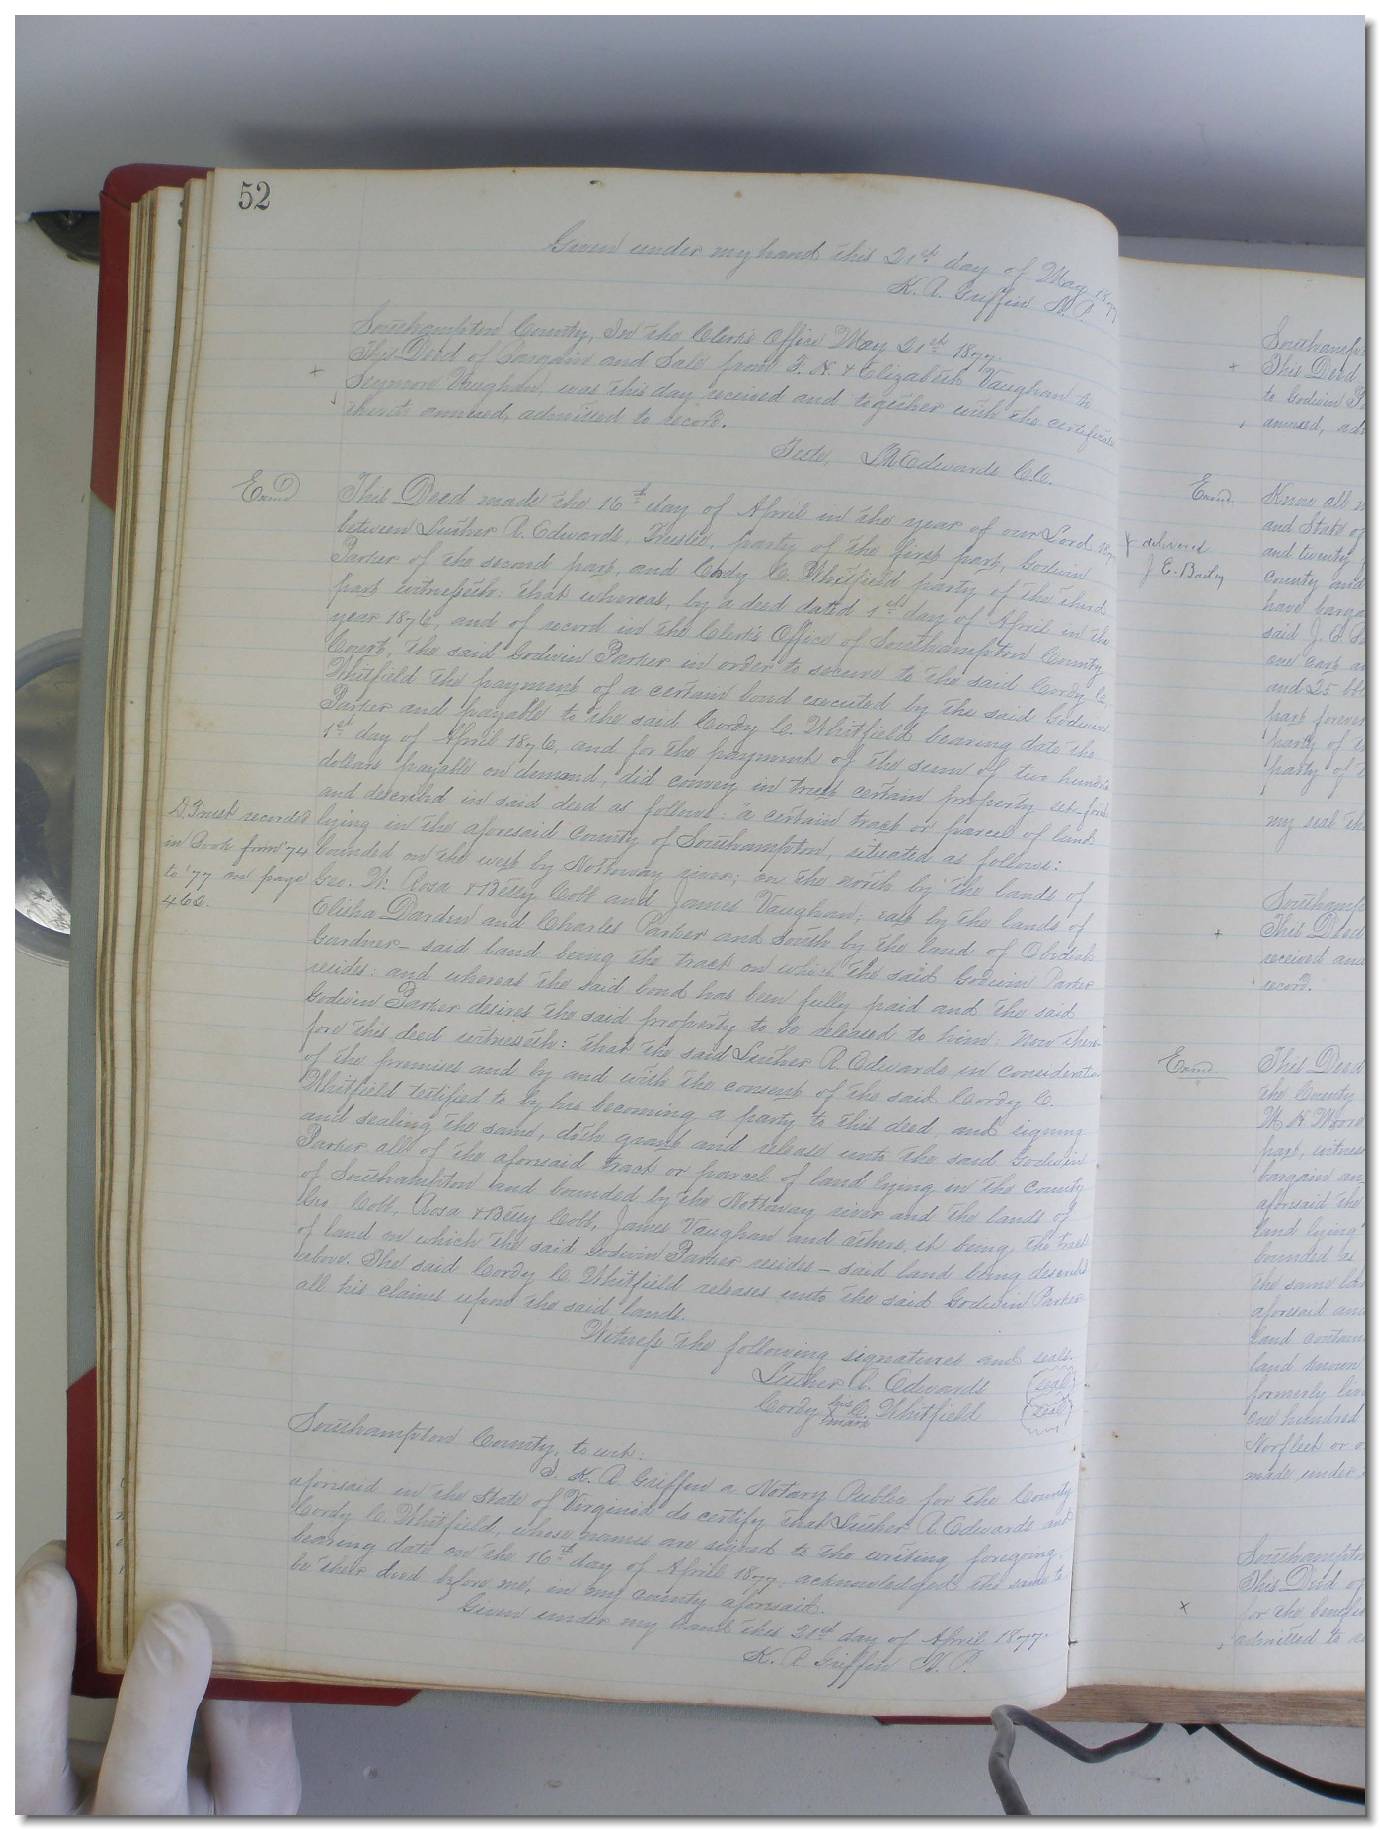 52
Given under my hand this 21st day of May 1877
K. A. Griffin N. P.
Southampton County, In the Clerk's Office May 21st 1877.
This Deed of Bargain and Sale from T. H. & Elizabeth Vaughan to
Seymore Vaughan, was this day received and together with the certificate
thereto annexed, admitted to record.
Teste, L R Edwards C.C.
Exmd
This Deed made the 16th day of April in the year of our Lord 187
between Luther R. Edwards, Trustee, party of the first part, Godwin
Parker of the second part, and Cordy C. Whitfield party of the third
part witnesseth: that whereas, by a deed dated 1st day of April in the
year 1876, and of record in the Clerk's Office of Southampton County
Court, the said Godwin Parker in order to secure to the said Cordy C.
Whitfield the payment of a certain bond executed by the said Godwin
Parker and payable to the said Cordy C. Whitfield bearing date the
1st day of April 1876, and for the payment of the sum of two hundred
dollars payable on demand, did convey in trust certain property set-forth
and described in said deed as follows: a certain tract or parcel of land
lying in the aforesaid County of Southampton, situated as follows:
bounded on the west by Nottoway river; on the north by the lands of
Geo. W. Rosa & Betty Cobb and James Vaughan; east by the lands of
Elisha Darden and Charles Parker and South by the land of Obediah
Gardner - said land being the tract on which the said Godwin Parker
resides: and whereas the said bond has been fully paid and the said
Godwin Parker desires the said property to be released to him: now there-
fore this deed witnesseth: that the said Luther R Edwards in consideration
of the premises and by and with the consent of the said Cordy C.
Whitfield testified to by his becoming a party to this deed, and signing
and sealing the same, doth grant and release unto the said Godwin
Parker all of the aforesaid tract or parcel of land lying in the County
of Southampton and bounded by the Nottoway river and the lands of
Geo Cobb, Rosa & Betty Cobb, James Vaughan and others, it being the tract
of land on which the said Godwin Parker resides - said land being described
above. The said Cordy C Whitfield releases unto the said Godwin Parker
all his claims upon the said lands.
Witness the following signatures and seals.
Luther R. Edwards (seal)
Cordy his X mark C. Whitfield (seal)
Southampton County, to wit:
I, K. A. Griffin a Notary Public for the County
aforesaid in the State of Virginia do certify that Luther R Edwards and
Cordy C. Whitfield, whose names are signed to the writing foregoing,
bearing date on the 16th day of April 1877, acknowledged the same to
be their deed before me, in my county aforesaid.
Given under my hand this 21st day of April 1877.
K. A Griffin N. P.
D. Trust recorded
in Book from '74
to '77 on page
466.
Southampto
This Deed
to Godwin P
annexed, ad
Exmd.
delivered
J E. Bailey
Know all m
and State of
and twenty
county and
have barga
said J. E.
one cart an
and 25 bb
part forever
party of t
party of t
my seal th
Southamp
This Deed
received an
record.
Exmd
This Deed
the County
W. H Moore
part, witnes
bargain an
aforesaid the
land lying
bounded as
the same la
aforesaid an
land contain
land known
formerly liv
one hundred
Norfleet or o
made under
Southampto
This Deed of
for the benefi
admitted to re